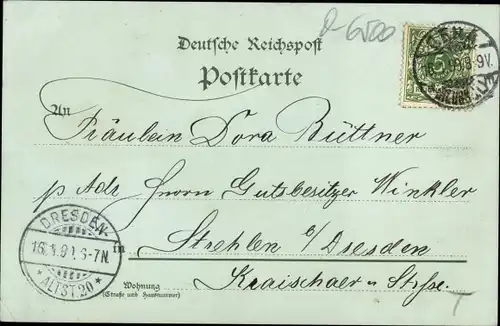 D-6500
Deutsche Reichspost
Postkarte
An
Fräulein Dora Büttner
p Adr Herrn Gutsbesitzer Winkler
in Strehlen b/Dresden
Wohnung
(Straße und Hausnummer)
DRESDEN-
6-7N.
* ALTST. 20 *
JENA
9V.
5
T